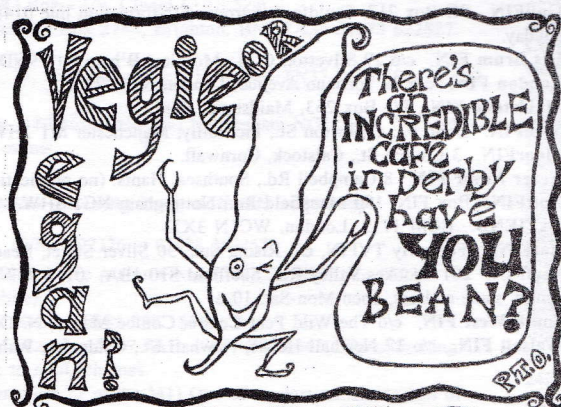 Vegie OR
egan?
There's
an
INCREDIBLE
cafe
in Derby
have
YOU
BEAN?
P.T.O.